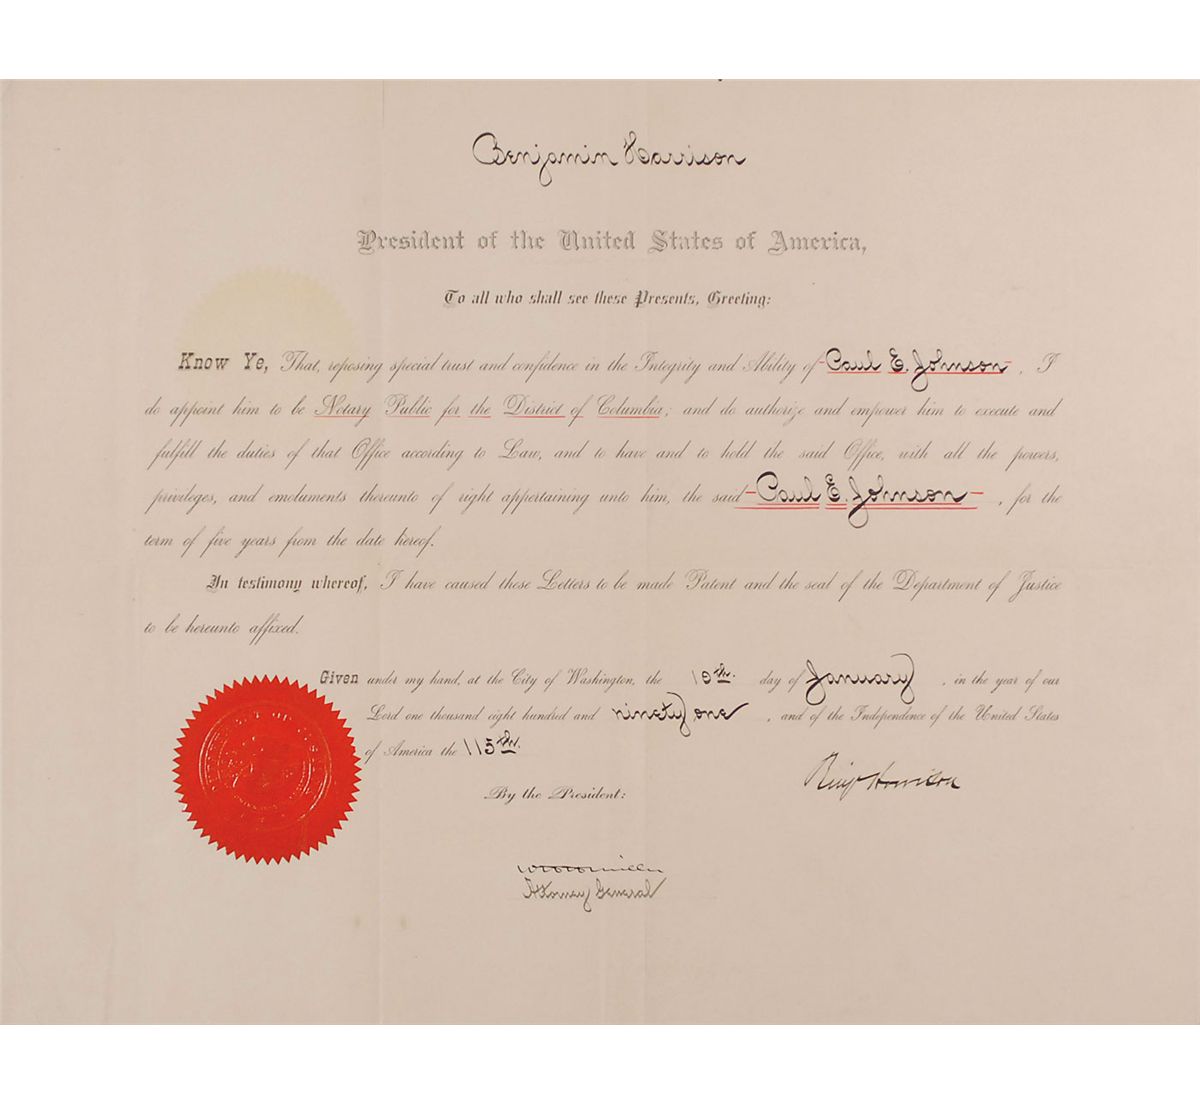 Benjamin Harrison
President of the United States of America,
To all who shall see these Presents, Greeting:
Know Ye, That, reposing special trust and confidence in the Integrity and Ability of Paul E. Johnson, I
do appoint him to be Notary Public for the District of Columbia; and do authorize and empower him to execute and
fulfill the duties of that Office according to Law, and to have and to hold the said Office, with all the powers,
privileges, and emoluments thereunto of right appertaining unto him, the said Paul E. Johnson, for the
term of five years from the date hereof.
In testimony whereof, I have caused these Letters to be made Patent and the seal of the Department of Justice
to be hereunto affixed.
Given under my hand, at the City of Washington, the 10th. day of January, in the year of our
Lord one thousand eight hundred and ninety one, and of the Independence of the United States
of America the 115th.
Benj Harrison
By the President:
Attorney General